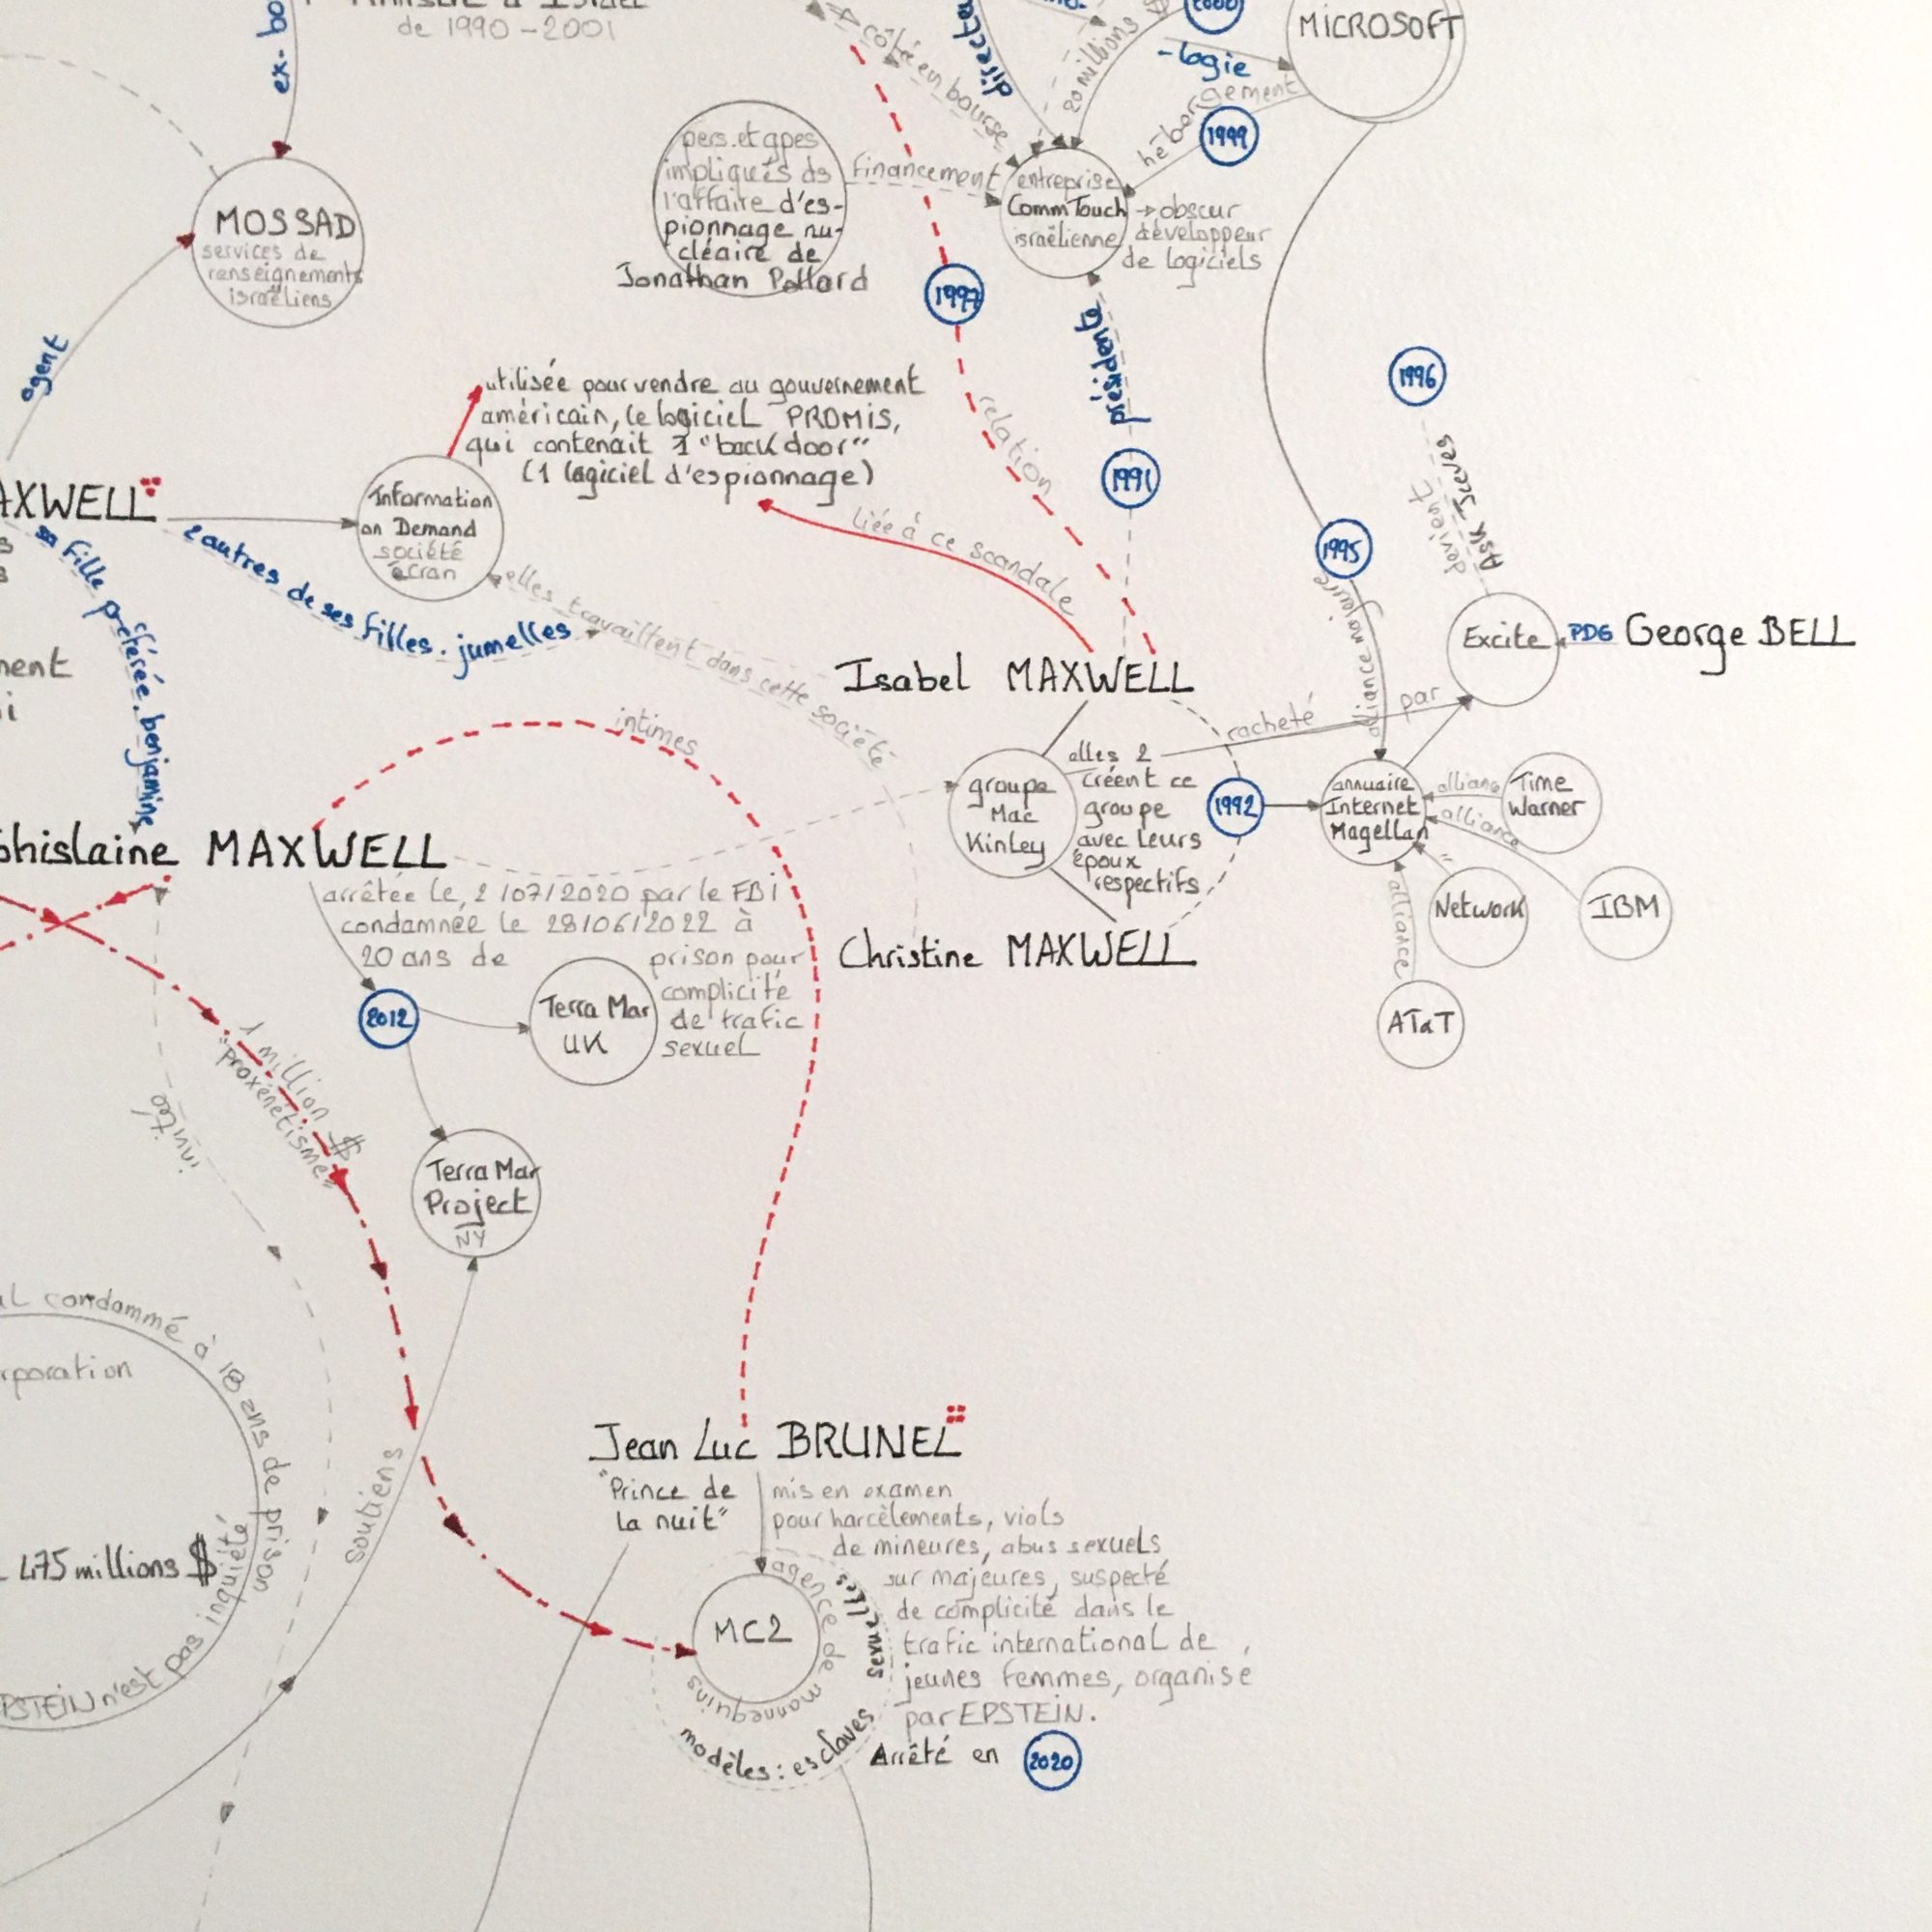 ex-bo
de 1990-2001
côté en bourse
directeu
20 millions $
2000
-logie
MICROSOFT
hébergement
1999
pers. et gpes
impliqués ds
l'affaire d'es-
pionnage nu-
cléaire de
Jonathan Pollard
financement
entreprise
CommTouch
israëlienne
→ obscur
développeur
de logiciels
MOSSAD
services de
renseignements
israëliens
agent
1997
présidente
1991
relation
1996
devient
Ask Jeeves
1995
alliance majeure
utilisée pour vendre au gouvernement
américain, le logiciel PROMIS,
qui contenait 1 "back door"
(1 logiciel d'espionnage)
AXWELL
Information
on Demand
société
écran
liée à ce scandale
sa fille préférée. benjamine
2 autres de ses filles. jumelles
elles travaillent dans cette société
ment
i
Excite
PDG
George BELL
Isabel MAXWELL
racheté par
intimes
groupe
Mac
Kinley
elles 2
créent ce
groupe
avec leurs
époux
respectifs
1992
annuaire
Internet
Magellan
alliance
Time
Warner
alliance
"
Network
IBM
alliance
ATaT
Ghislaine MAXWELL
arrêtée le, 2/07/2020 par le FBi
condamnée le 28/06/2022 à
20 ans de prison pour
complicité
de trafic
sexuel
Christine MAXWELL
2012
Terra Mar
UK
1 million $
"proxénétisme"
invitée
Terra Mar
Project
NY
al condammé à 18 ans de prison
rporation
475 millions $
EPSTEIN n'est pas inquiété
soutiens
Jean Luc BRUNEL
"Prince de
la nuit"
mis en examen
pour harcèlements, viols
de mineures, abus sexuels
sur majeures, suspecté
de complicité dans le
trafic international de
jeunes femmes, organisé
par EPSTEIN.
Arrêté en 2020
MC2
agence de mannequins
modèles: esclaves sexuelles